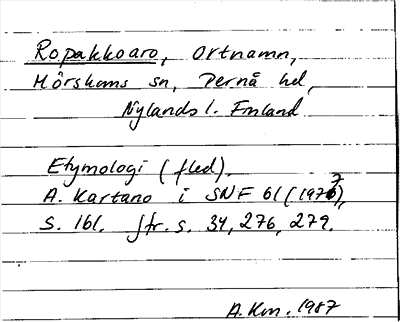 Ropakkoaro, Ortnamn,
Mörskoms sn, Pernå hd,
Nylands l. Finland
Etymologi (fled).
A. Kartano i SNF 61 (1977),
S. 161. Jfr. s. 34, 276, 279.
A.Km. 1987